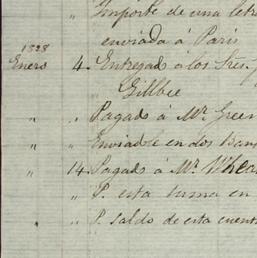 " Importe de una letra
enviada á Paris
1828
Enero 4. Entregado a los Sres.
Gillbee
" " Pagado á Mr. Green
" " Enviadole en dos
" 14 Pagado á Mr.
" " P. esta suma en
" " P. saldo de esta cuent